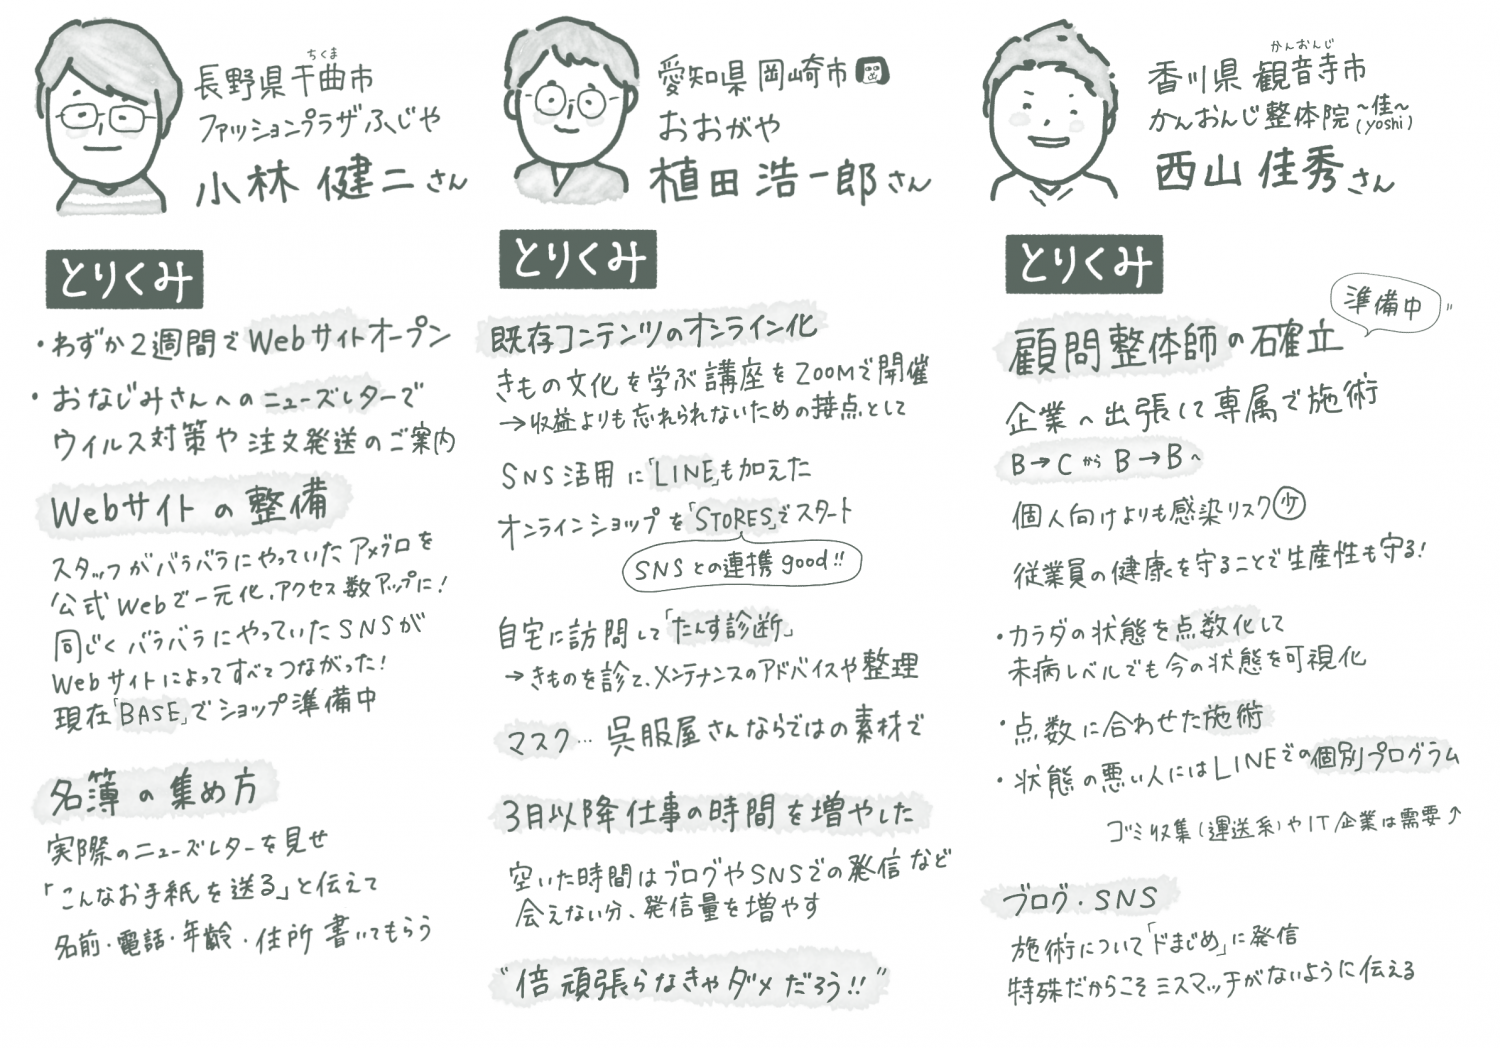 長野県千曲市
ちくま
ファッションプラザふじや
小林 健二さん
とりくみ
・わずか2週間でWebサイトオープン
・おなじみさんへのニューズレターで
ウイルス対策や注文発送のご案内
Webサイトの整備
スタッフがバラバラにやっていたアメブロを
公式Webで一元化、アクセス数アップに!
同じくバラバラにやっていたSNSが
Webサイトによってすべてつながった!
現在「BASE」でショップ準備中
名簿の集め方
実際のニューズレターを見せ
「こんなお手紙を送る」と伝えて
名前・電話・年齢・住所 書いてもらう
愛知県岡崎市
おおがや
植田 浩一郎さん
とりくみ
既存コンテンツのオンライン化
きもの文化を学ぶ講座をZOOMで開催
→収益よりも忘れられないための接点として
SNS活用に「LINE」も加えた
オンラインショップを「STORES」でスタート
SNSとの連携good!!
自宅に訪問して「たんす診断」
→きものを診て、メンテナンスのアドバイスや整理
マスク…呉服屋さんならではの素材で
3月以降仕事の時間を増やした
空いた時間はブログやSNSでの発信など
会えない分、発信量を増やす
"倍頑張らなきゃダメだろう!!"
かんおんじ
香川県 観音寺市
かんおんじ整体院 ~佳~
(yoshi)
西山 佳秀さん
とりくみ
準備中
顧問整体師の確立
企業へ出張して専属で施術
B→CからB→Bへ
個人向けよりも感染リスク少
従業員の健康を守ることで生産性も守る!
・カラダの状態を点数化して
未病レベルでも今の状態を可視化
・点数に合わせた施術
・状態の悪い人にはLINEでの個別プログラム
ゴミ収集(運送系)やIT企業は需要↑
ブログ・SNS
施術について「ドまじめ」に発信
特殊だからこそミスマッチがないように伝える